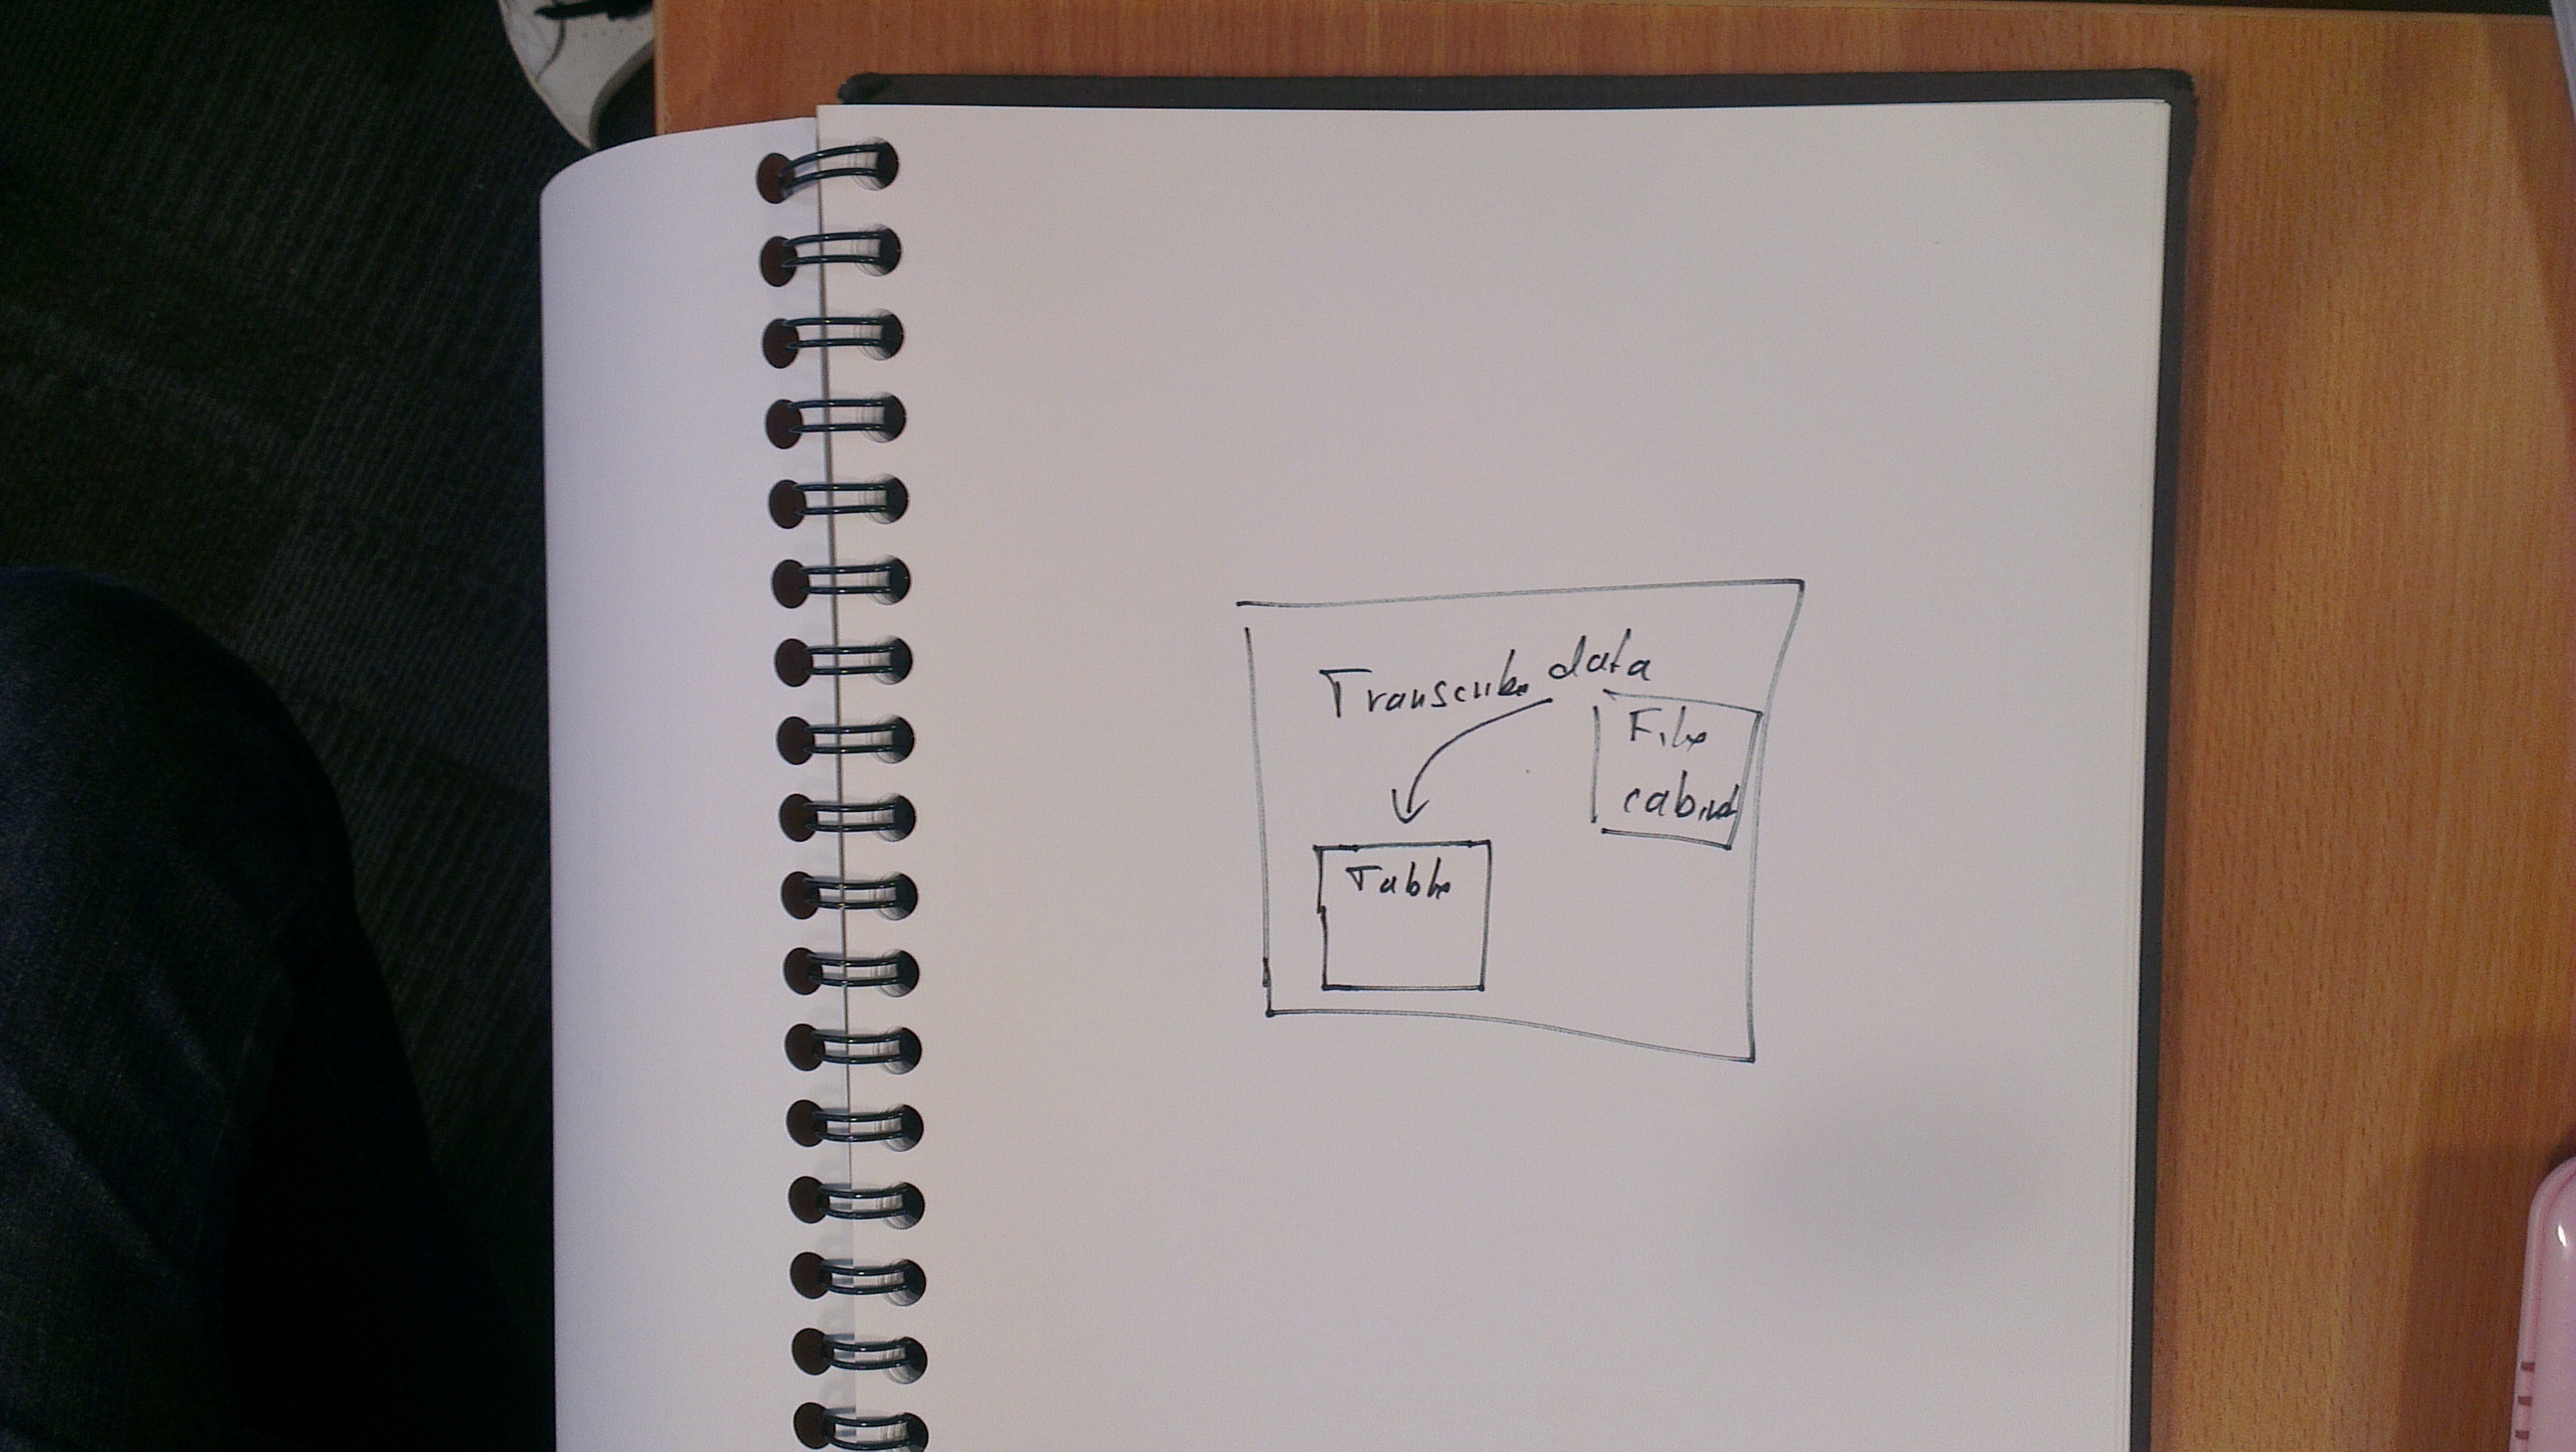 Transcribe data
File
cabinet
Table